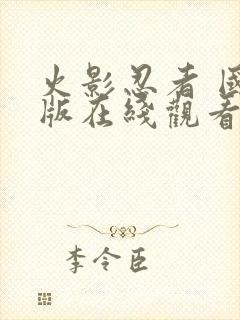 火影忍者 國
版在綫觀看
李令臣